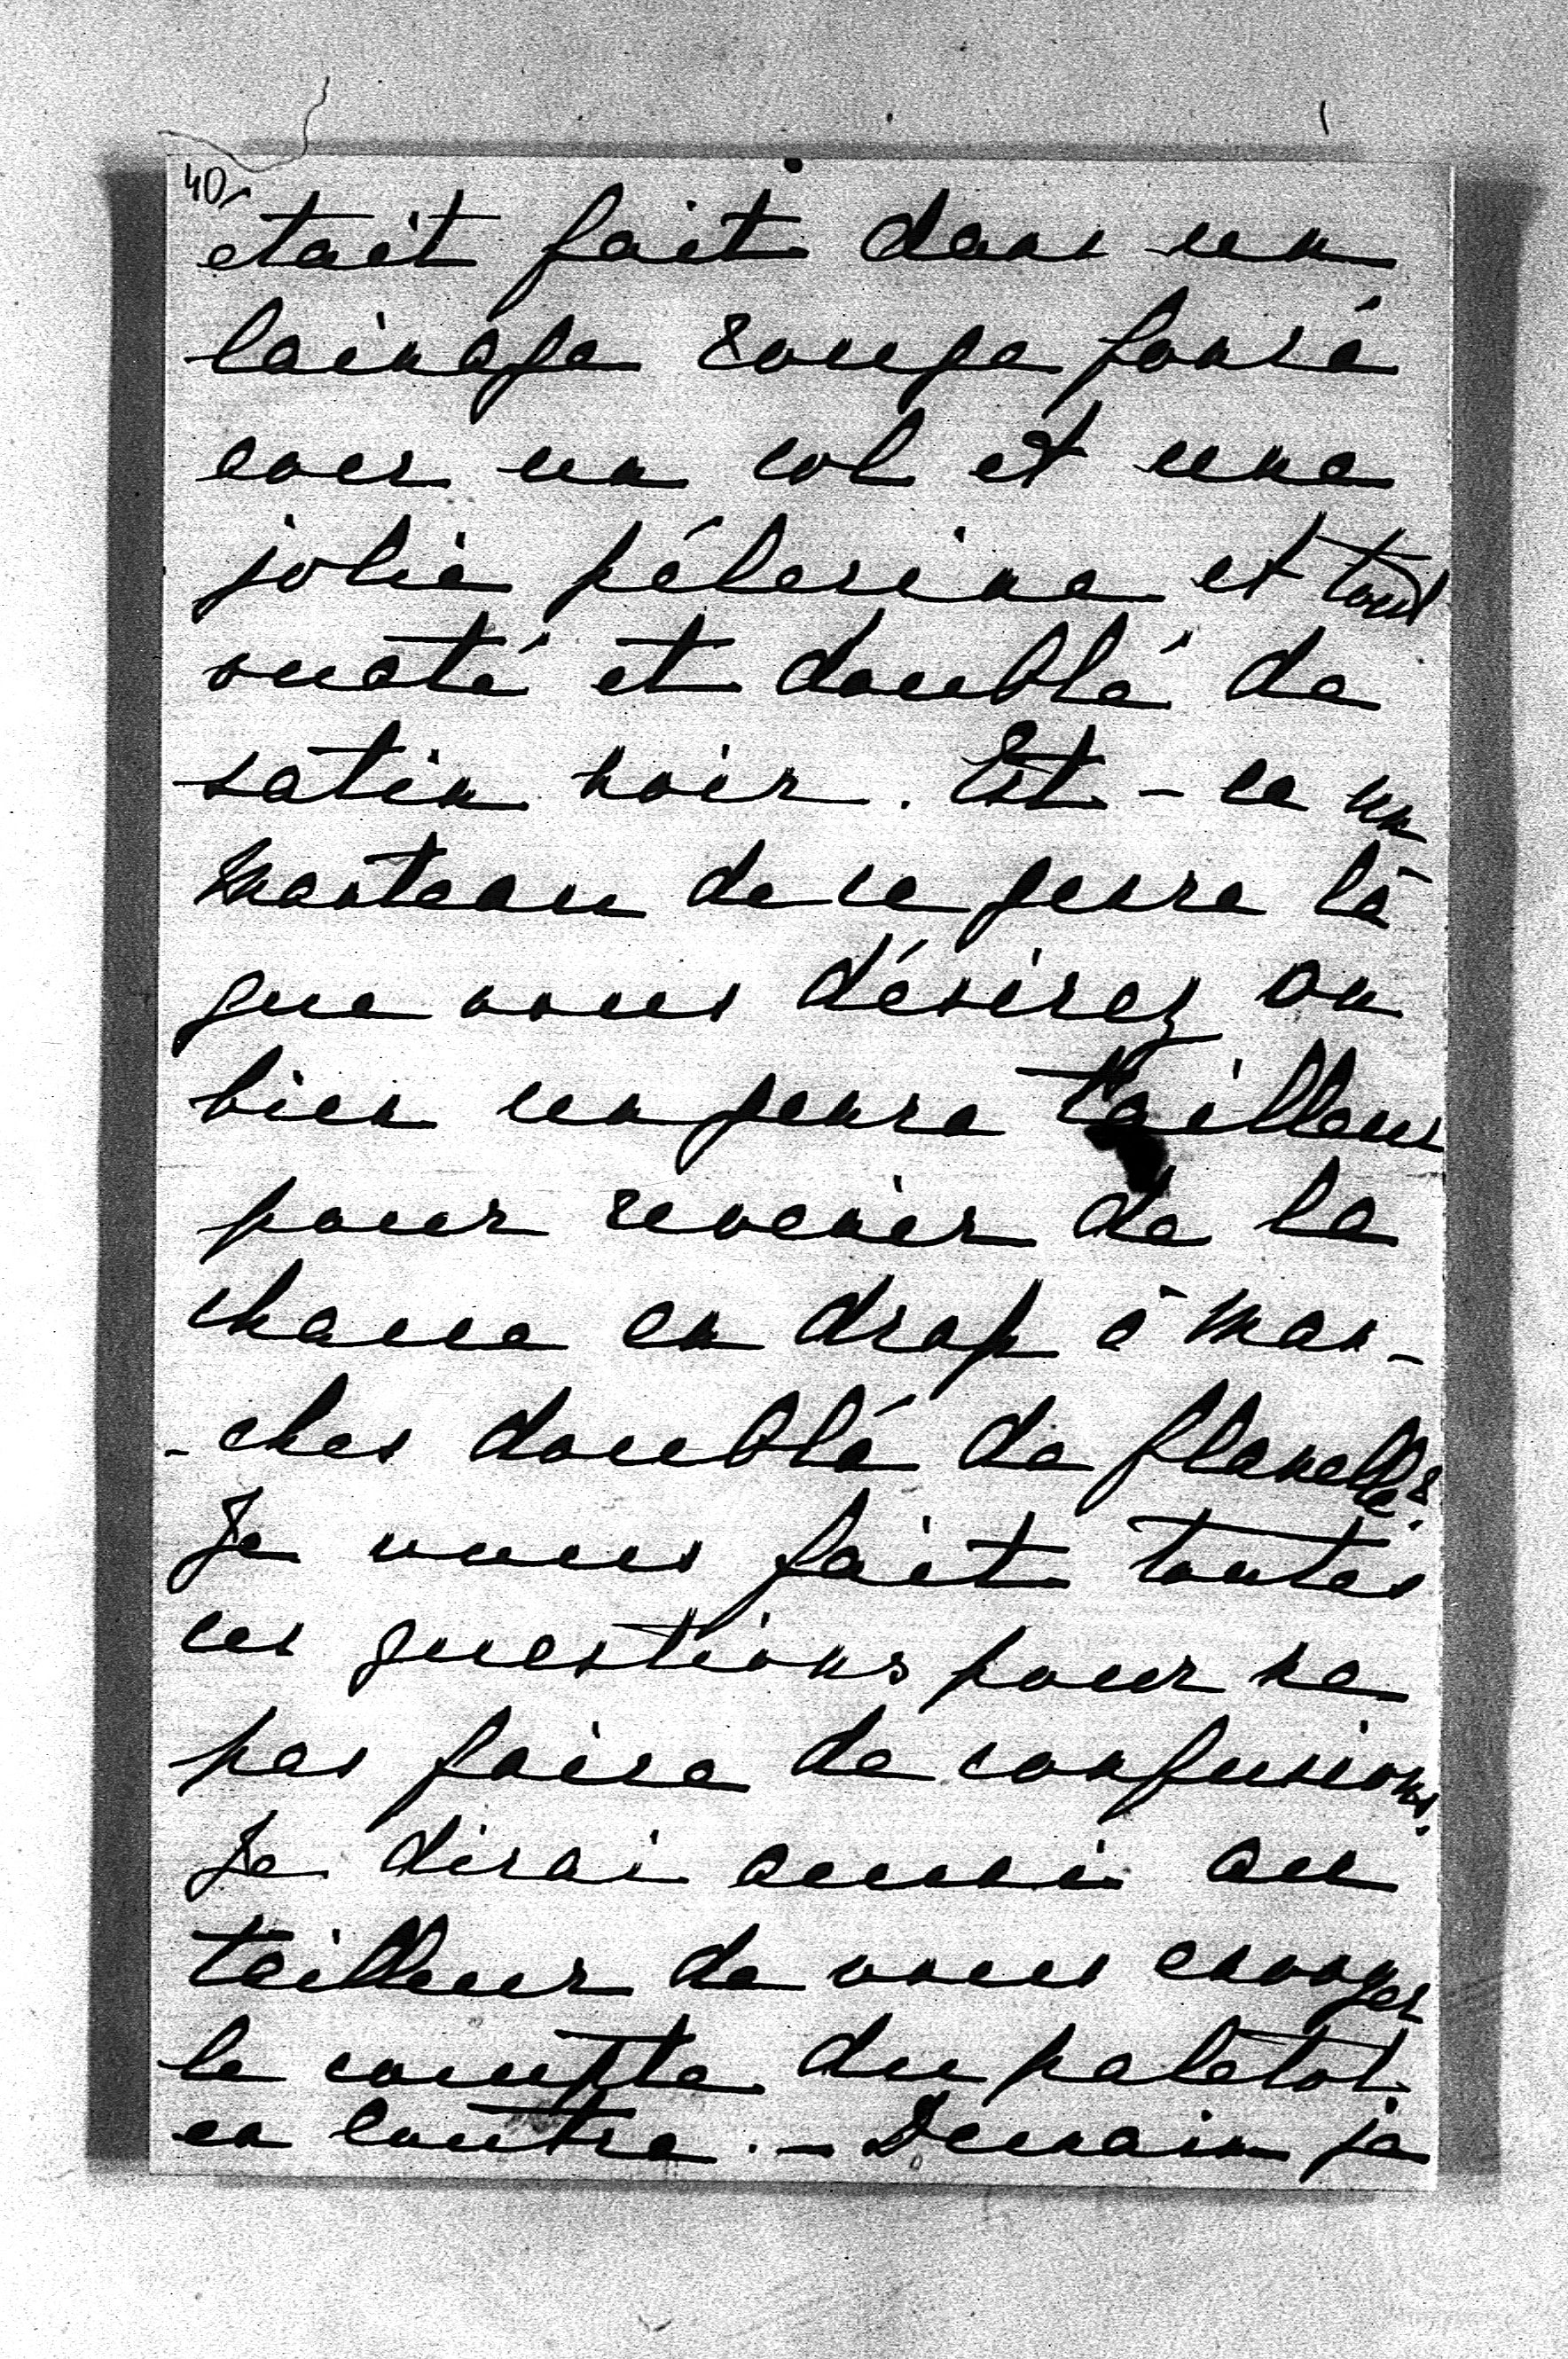 40
était fait dans un
lainage rouge foncé
avec un col et une
jolie pélerine et tout
ouaté et doublé de
satin noir. Est-ce un
manteau de ce genre là
que vous désirez ou
bien un genre tailleur
pour revenir de la
chasse en drap à man-
-ches doublé de flanelle?
Je vous fait toutes
ces questions pour ne
pas faire de confusions.
Je dirai aussi au
tailleur de vous envoyer
le compte du paletot
en loutre. - Demain je